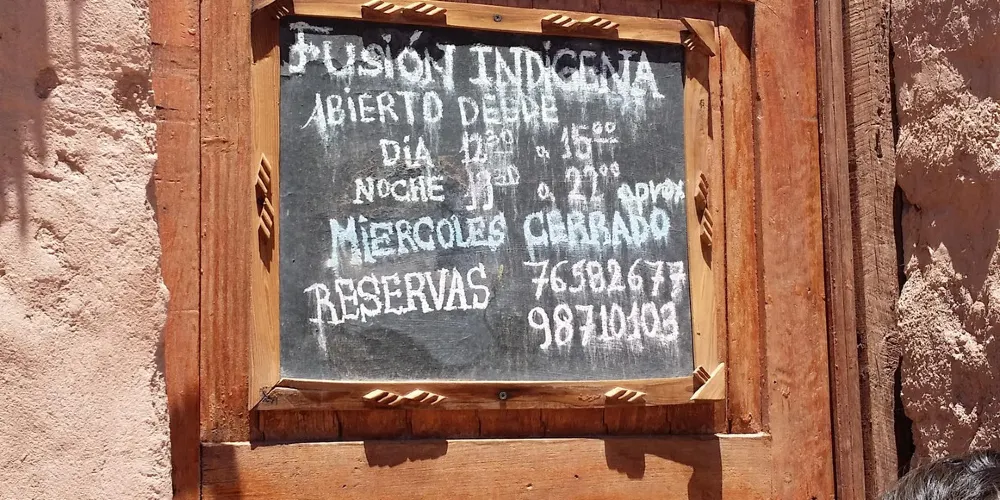 FUSIÓN INDIGENA
ABIERTO DESDE
DÍA 12³⁰ a 15⁰⁰
NOCHE a 22⁰⁰ aprox
MIERCOLES CERRADO
RESERVAS 76582677
98710103